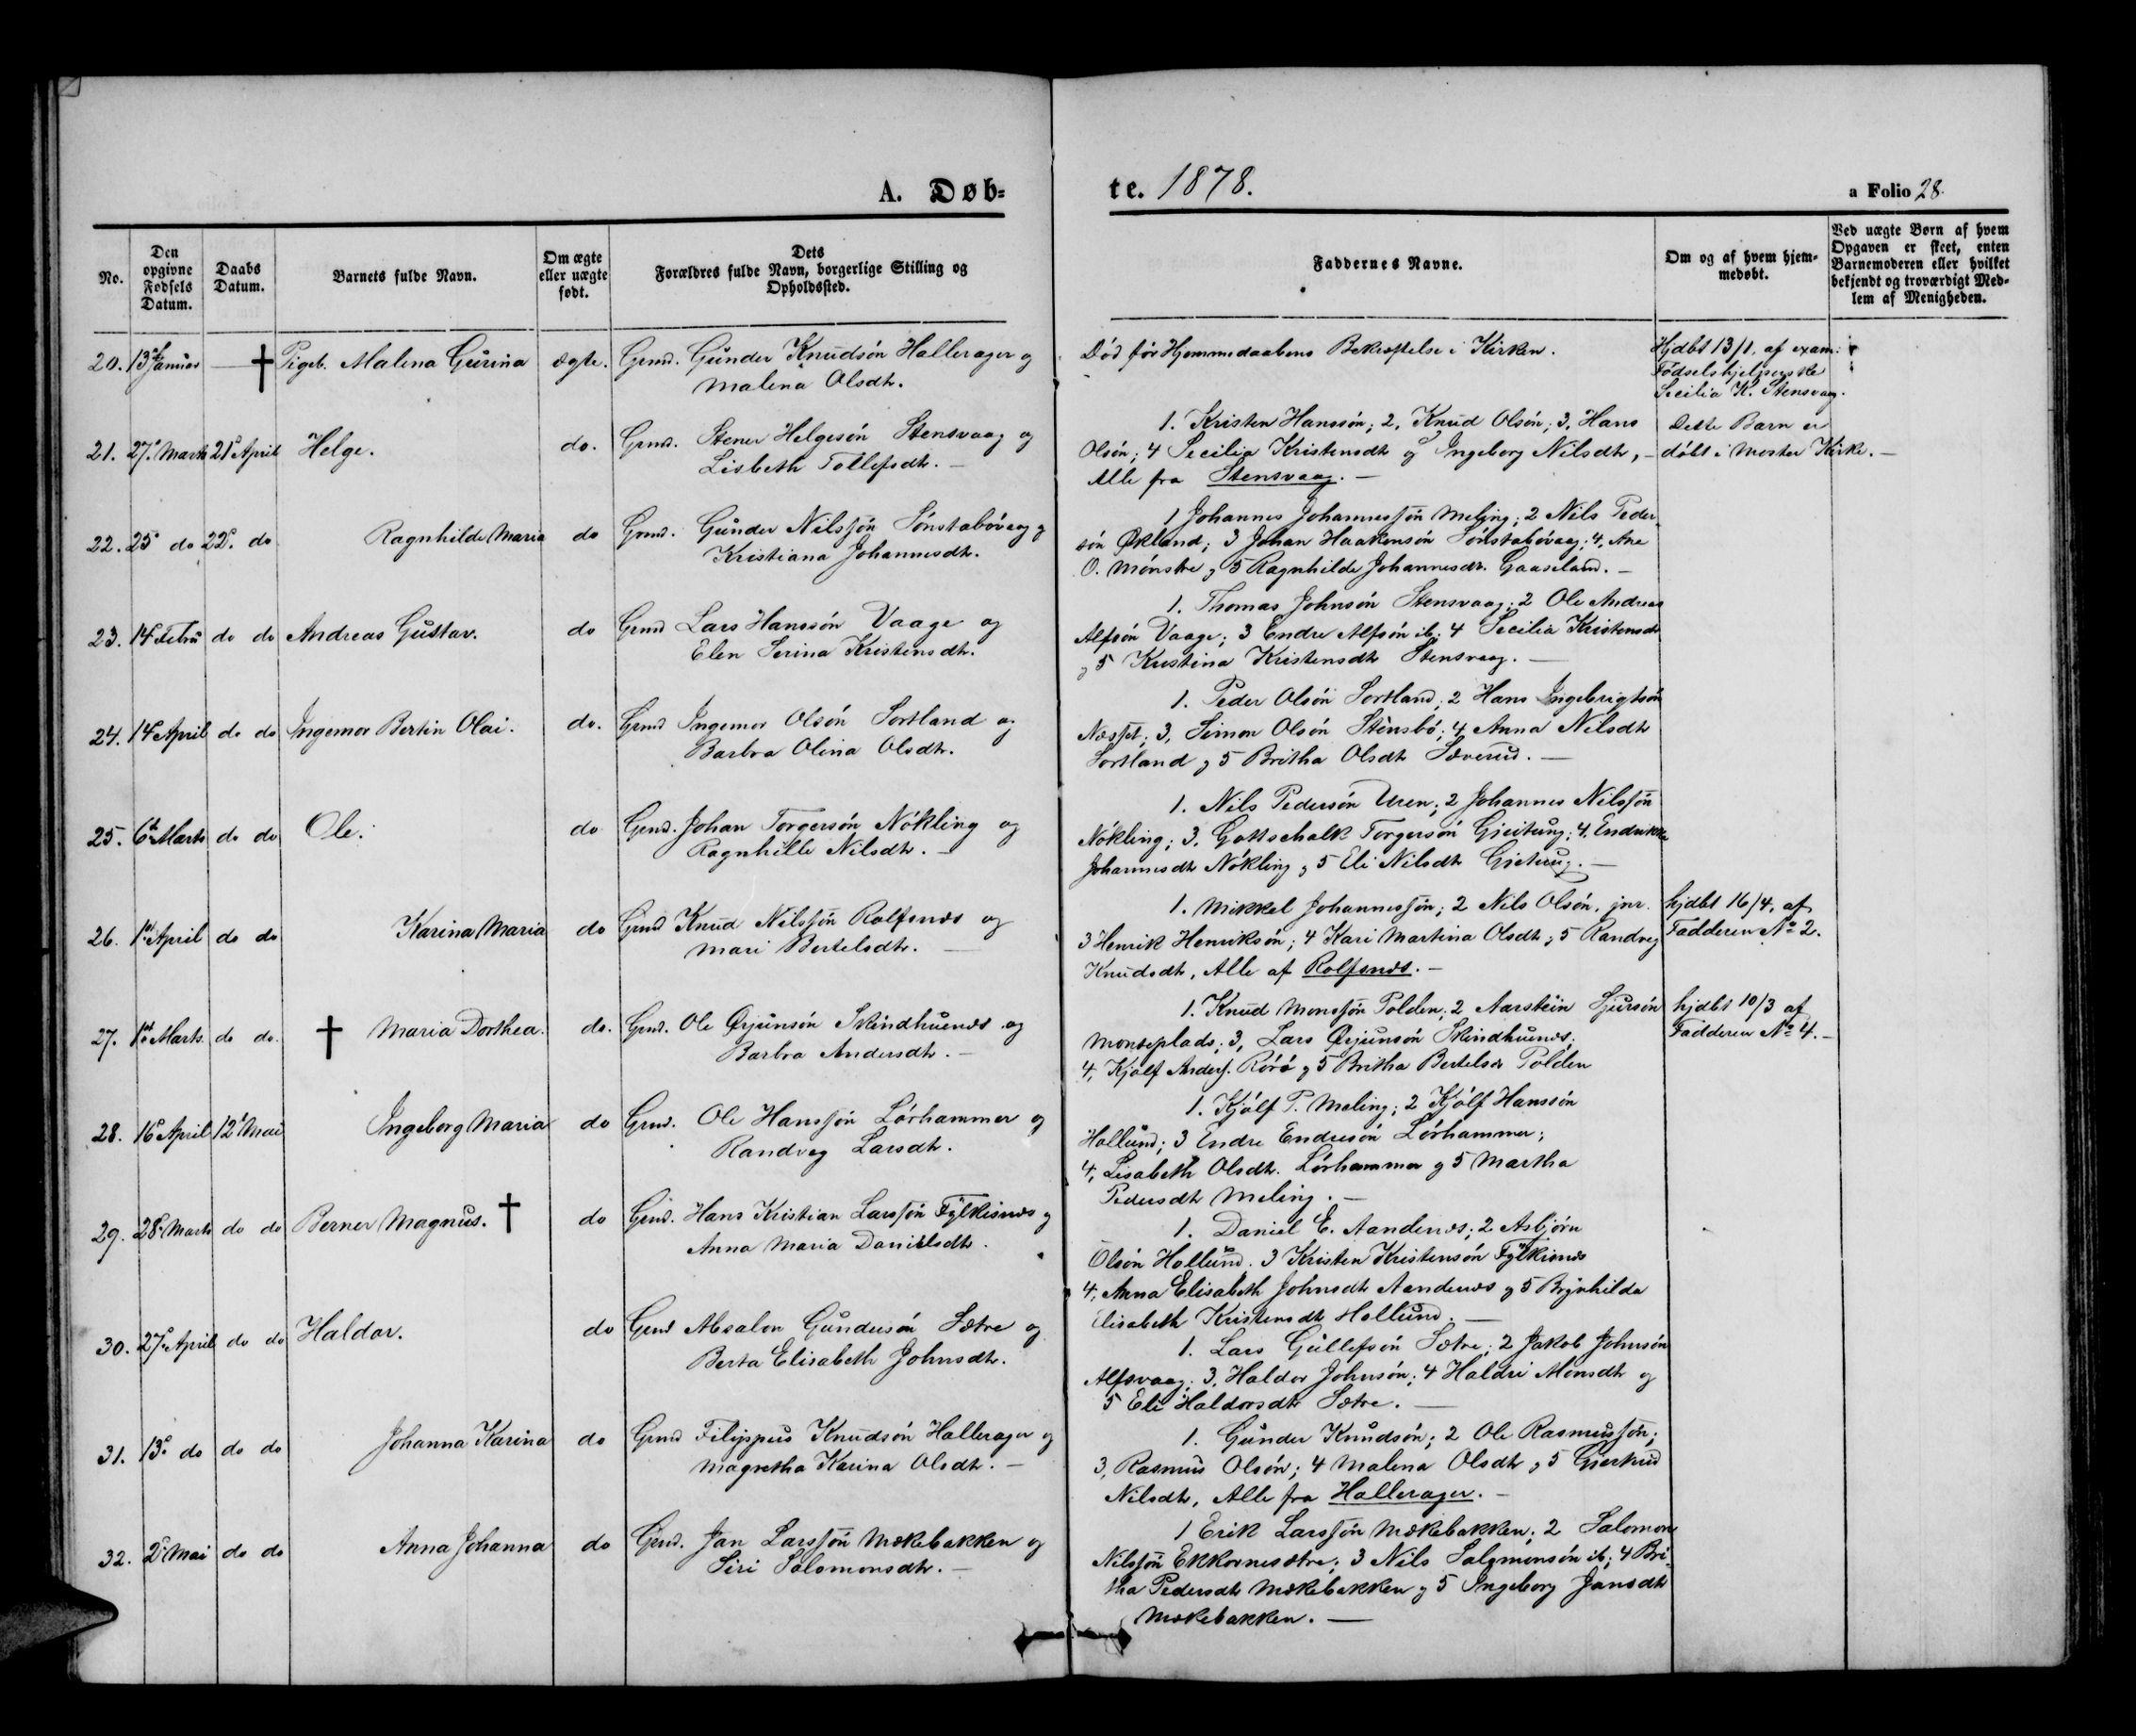 A. Døb-
te. 1878.
a Folio 28.
No.
Den opgivne Fødsels Datum.
Daabs Datum.
Barnets fulde Navn.
Om ægte eller uægte født.
Dets Forældres fulde Navn, borgerlige Stilling og Opholdssted.
Faddernes Navne.
Om og af hvem hjem-
medøbt.
Ved uægte Børn af hvem
Opgaven er skeet, enten
Barnemoderen eller hvilket
bekjendt og troværdigt Med-
lem af Menigheden.
20. 13de Januar — † Pigeb. Malena Gurina ægte. Grmd. Gunder Knudsón Hallerager og
Malena Olsdtr.
Død før Hjemmedaabens Bekræftelse i Kirken.
Hjdbt 13/1. af exam:
Fødselshjelperske
Secilia K. Stensvaag.
21. 27de Marts 21de April Helge. do. Grmd. Stener Helgesón Stensvaag og
Lisbeth Tollefsdtr. —
1. Kristen Hanssón; 2, Knud Olsón; 3, Hans
Olsón; 4 Secilia Kristensdtr og Ingeborg Nilsdtr, —
Alle fra Stensvaag. —
Dette Barn er
døbt i Moster Kirke. —
22. 25de do 22de do Ragnhilde Maria do Grmd. Gunder Nilssón Sónstabóvaag og
Kristiana Johannesdtr.
1 Johannes Johannessón Meling; 2 Nils Peder-
són Økland; 3 Johan Haakensón Sónstabóvaag; 4, Ane
O. Mónstre og 5 Ragnhilde Johannesdr. Gaaseland. —
23. 14de Febru do do Andreas Gustav. do Grmd Lars Hanssón Vaage og
Elen Serina Kristensdtr.
1. Thomas Johnsón Stensvaag; 2 Ole Andreas
Alfsón Vaage; 3 Endre Alfsón ib; 4 Secilia Kristensdtr
og 5 Kristina Kristensdtr Stensvaag. —
24. 14de April do do Ingemor Bertin Olai. do. Grmd Ingemor Olsón Sortland og
Barbra Olina Olsdtr.
1. Peder Olsón Sortland; 2 Hans Ingebrigtsón
Næsset; 3, Simon Olsón Stensbó; 4 Anna Nilsdtr
Sortland og 5 Britha Olsdtr Sæverud. —
25. 6te Marts do do Ole. do Grmd. Johan Torgersón Nókling og
Ragnhille Nilsdtr. —
1. Nils Pedersón Uren; 2 Johannes Nilssón
Nókling; 3, Gottschalk Torgersón Gjeitung; 4, Endrikke
Johannesdtr Nókling og 5 Eli Nilsdtr Gjetung. —
26. 1ste April do do Karina Maria do Grmd Knud Nilssón Rolfsnæs og
Mari Bertelsdtr. —
1. Mikkel Johannessón; 2 Nils Olsón, jnr.
3 Henrik Henriksón; 4 Kari Martina Olsdtr og 5 Randveg
Knudsdtr, Alle af Rolfsnæs. —
hjdbt 16/4, af
Fadderen No 2.
27. 1ste Marts. do do. † Maria Dorthea. do. Grmd. Ole Ørjunsón Skindhuenæs og
Barbra Andersdtr. —
1. Knud Monssón Polden; 2 Aarstein Sjursón
Monseplads; 3, Lars Ørjunsón Skindhuenæs;
4, Kjólf Anders. Róró og 5 Britha Bertelsdr Polden
hjdbt 10/3 af
Fadderen No 4. —
28. 16de April 12te Mai Ingeborg Maria do Grmd. Ole Hanssón Lórhammer og
Randveg Larsdtr.
1. Kjólf P. Meling; 2 Kjólf Hanssón
Hollund; 3 Endre Endresón Lórhammer;
4, Lisabeth Olsdtr. Lórhammer og 5 Martha
Pedersdtr Meling. —
29. 28de Marts do do Berner Magnus. † do Grmd. Hans Kristian Larssón Fylkisnæs og
Anna Maria Danielsdtr.
1. Daniel E. Aandenæs; 2 Asbjórn
Olsón Hollund; 3 Kristen Kristensón Fylkisnæs
4, Anna Elisabeth Johnsdtr Aandenæs og 5 Brynhilda
Elisabeth Kristensdtr Hollund. —
30. 27de April do do Haldor. do Grmd Absalon Gundersón Sætre og
Berta Elisabeth Johnsdtr.
1. Lars Gullefsón Sætre; 2 Jakob Johnsón
Alfsvaag; 3, Haldor Johnsón; 4 Haldri Monsdtr og
5 Eli Haldorsdtr Sætre. —
31. 13de do do do Johanna Karina do Grmd Filippus Knudsón Hallerager og
Magretha Karina Olsdtr. —
1. Gunder Knudsón; 2 Ole Rasmussón;
3, Rasmus Olsón; 4 Malena Olsdtr og 5 Gjertrud
Nilsdtr, Alle fra Hallerager. —
32. 2den Mai do do Anna Johanna do Grmd. Jan Larssón Mækebakken og
Siri Salomonsdtr. —
1 Erik Larssón Mækebakken; 2 Salomon
Nilssón Ekkornesætre; 3 Nils Salomonsón ib; 4 Bri-
tha Pedersdtr Mækebakken og 5 Ingeborg Jansdtr
Mækebakken. —